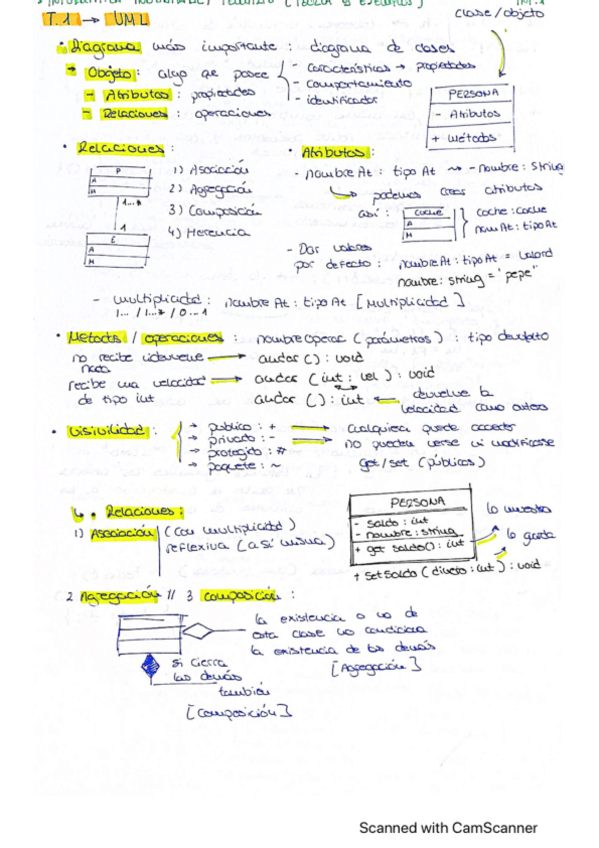 T.1 → UML
clase/objeto
• Diagrama más importante : diagrama de clases
→ Objeto : algo que posee
- Características → propiedades
- comportamiento
- identificador
- Atributos : propiedades
- Relaciones : operaciones
PERSONA
- Atributos
+ Métodos
• Relaciones :
P
A
M
1..*
1
E
A
M
1) Asociación
2) Agregación
3) Composición
4) Herencia
• Atributos :
- nombre At : tipo At ⇝ - nombre : String
podemos crear atributos
así :
COCHE
A
M
coche : Coche
nomAt : tipoAt
- Dar valores
por defecto : nombreAt : tipoAt = valor
nombre : string = "pepe"
- multiplicidad : nombre At : tipo At [Multiplicidad]
1... / 1...* / 0...1
• Métodos / operaciones : nombreOperac (parámetros) : tipo devuelto
no recibe ni devuelve nada → andar () : void
recibe una velocidad de tipo int → andar (int : vel) : void
andar () : int ← devuelve la
velocidad como entero
• Visibilidad :
→ publico : + → cualquiera puede acceder
→ privado : - → no pueden verse ni modificarse
→ protegido : #
→ paquete : ~
get/set (públicos)
↳ • Relaciones :
1) Asociación (con multiplicidad)
reflexiva (a sí misma)
PERSONA
- saldo : int
- nombre : string
+ get saldo() : int
+ setSaldo (dinero : int) : void
lo muestra
lo guarda
2 Agregación // 3 composición :
la existencia o no de
esta clase no condiciona
la existencia de los demás
[Agregación]
si cierra
las demás
también
[Composición]
Scanned with CamScanner